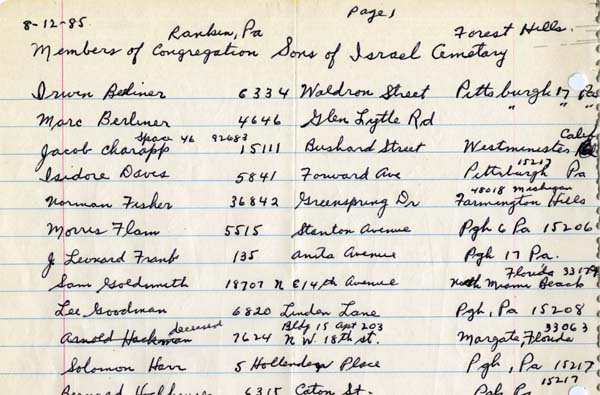 8-12-85 Rankin, Pa Page 1 Forest Hills.
Members of Congregation Sons of Israel Cemetary
Irwin Berliner 6334 Waldron Street Pittsburgh 17 Pa
Marc Berliner 4646 Glen Lytle Rd " " "
Space 46 92683 Calif
Jacob Charapp 15111 Bushard Street Westminester,
15217
Isidore Davis 5841 Forward Ave Pittsburgh Pa
48018 Michigan
Norman Fisher 36842 Greenspring Dr Farmington Hills
Morris Flam 5515 Stanton Avenue Pgh 6 Pa 15206
J Leonard Frank 135 Anita Avenue Pgh 17 Pa.
Florida 33179
Sam Goldsmith 18707 N E 14th Avenue North Miami Beach
Lee Goodman 6820 Linden Lane Pgh, Pa 15208
deceased Bldg 15 Apt 203 33063
Arnold Hackman 7624 N.W. 18th St. Margate Florida
Solomon Harr 5 Hollender Place Pgh, Pa 15217
15217
Bernard 6315 Caton St. Pgh Pa